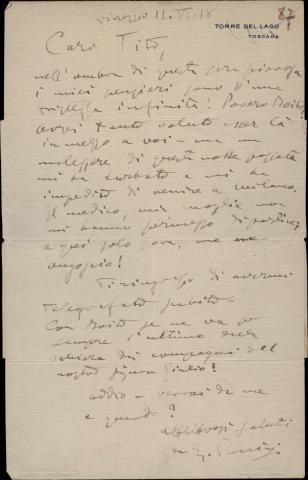 viareggio 11.VI.18
87
TORRE DEL LAGO
TOSCANA
Caro Tito,
nell'ombra di questa sera piovosa
i miei pensieri sono d'una
tristezza infinita! Povero Boito!
avrei tanto voluto esser là
in mezzo a voi - ma un
malessere di questa notte passata
mi ha turbato e mi ha
impedito di venire a Milano.
Il medico, mia moglie non
mi hanno permesso di partire
e qui solo, ora, me
angoscio!
Ti ringrazio di avermi
telegrafato subito.
Con Boito se ne va per
sempre l'ultimo della
schiera dei compagni del
nostro signor Giulio!
addio - verrai da me
e quando?
affettuosi saluti
tuo G. Puccini